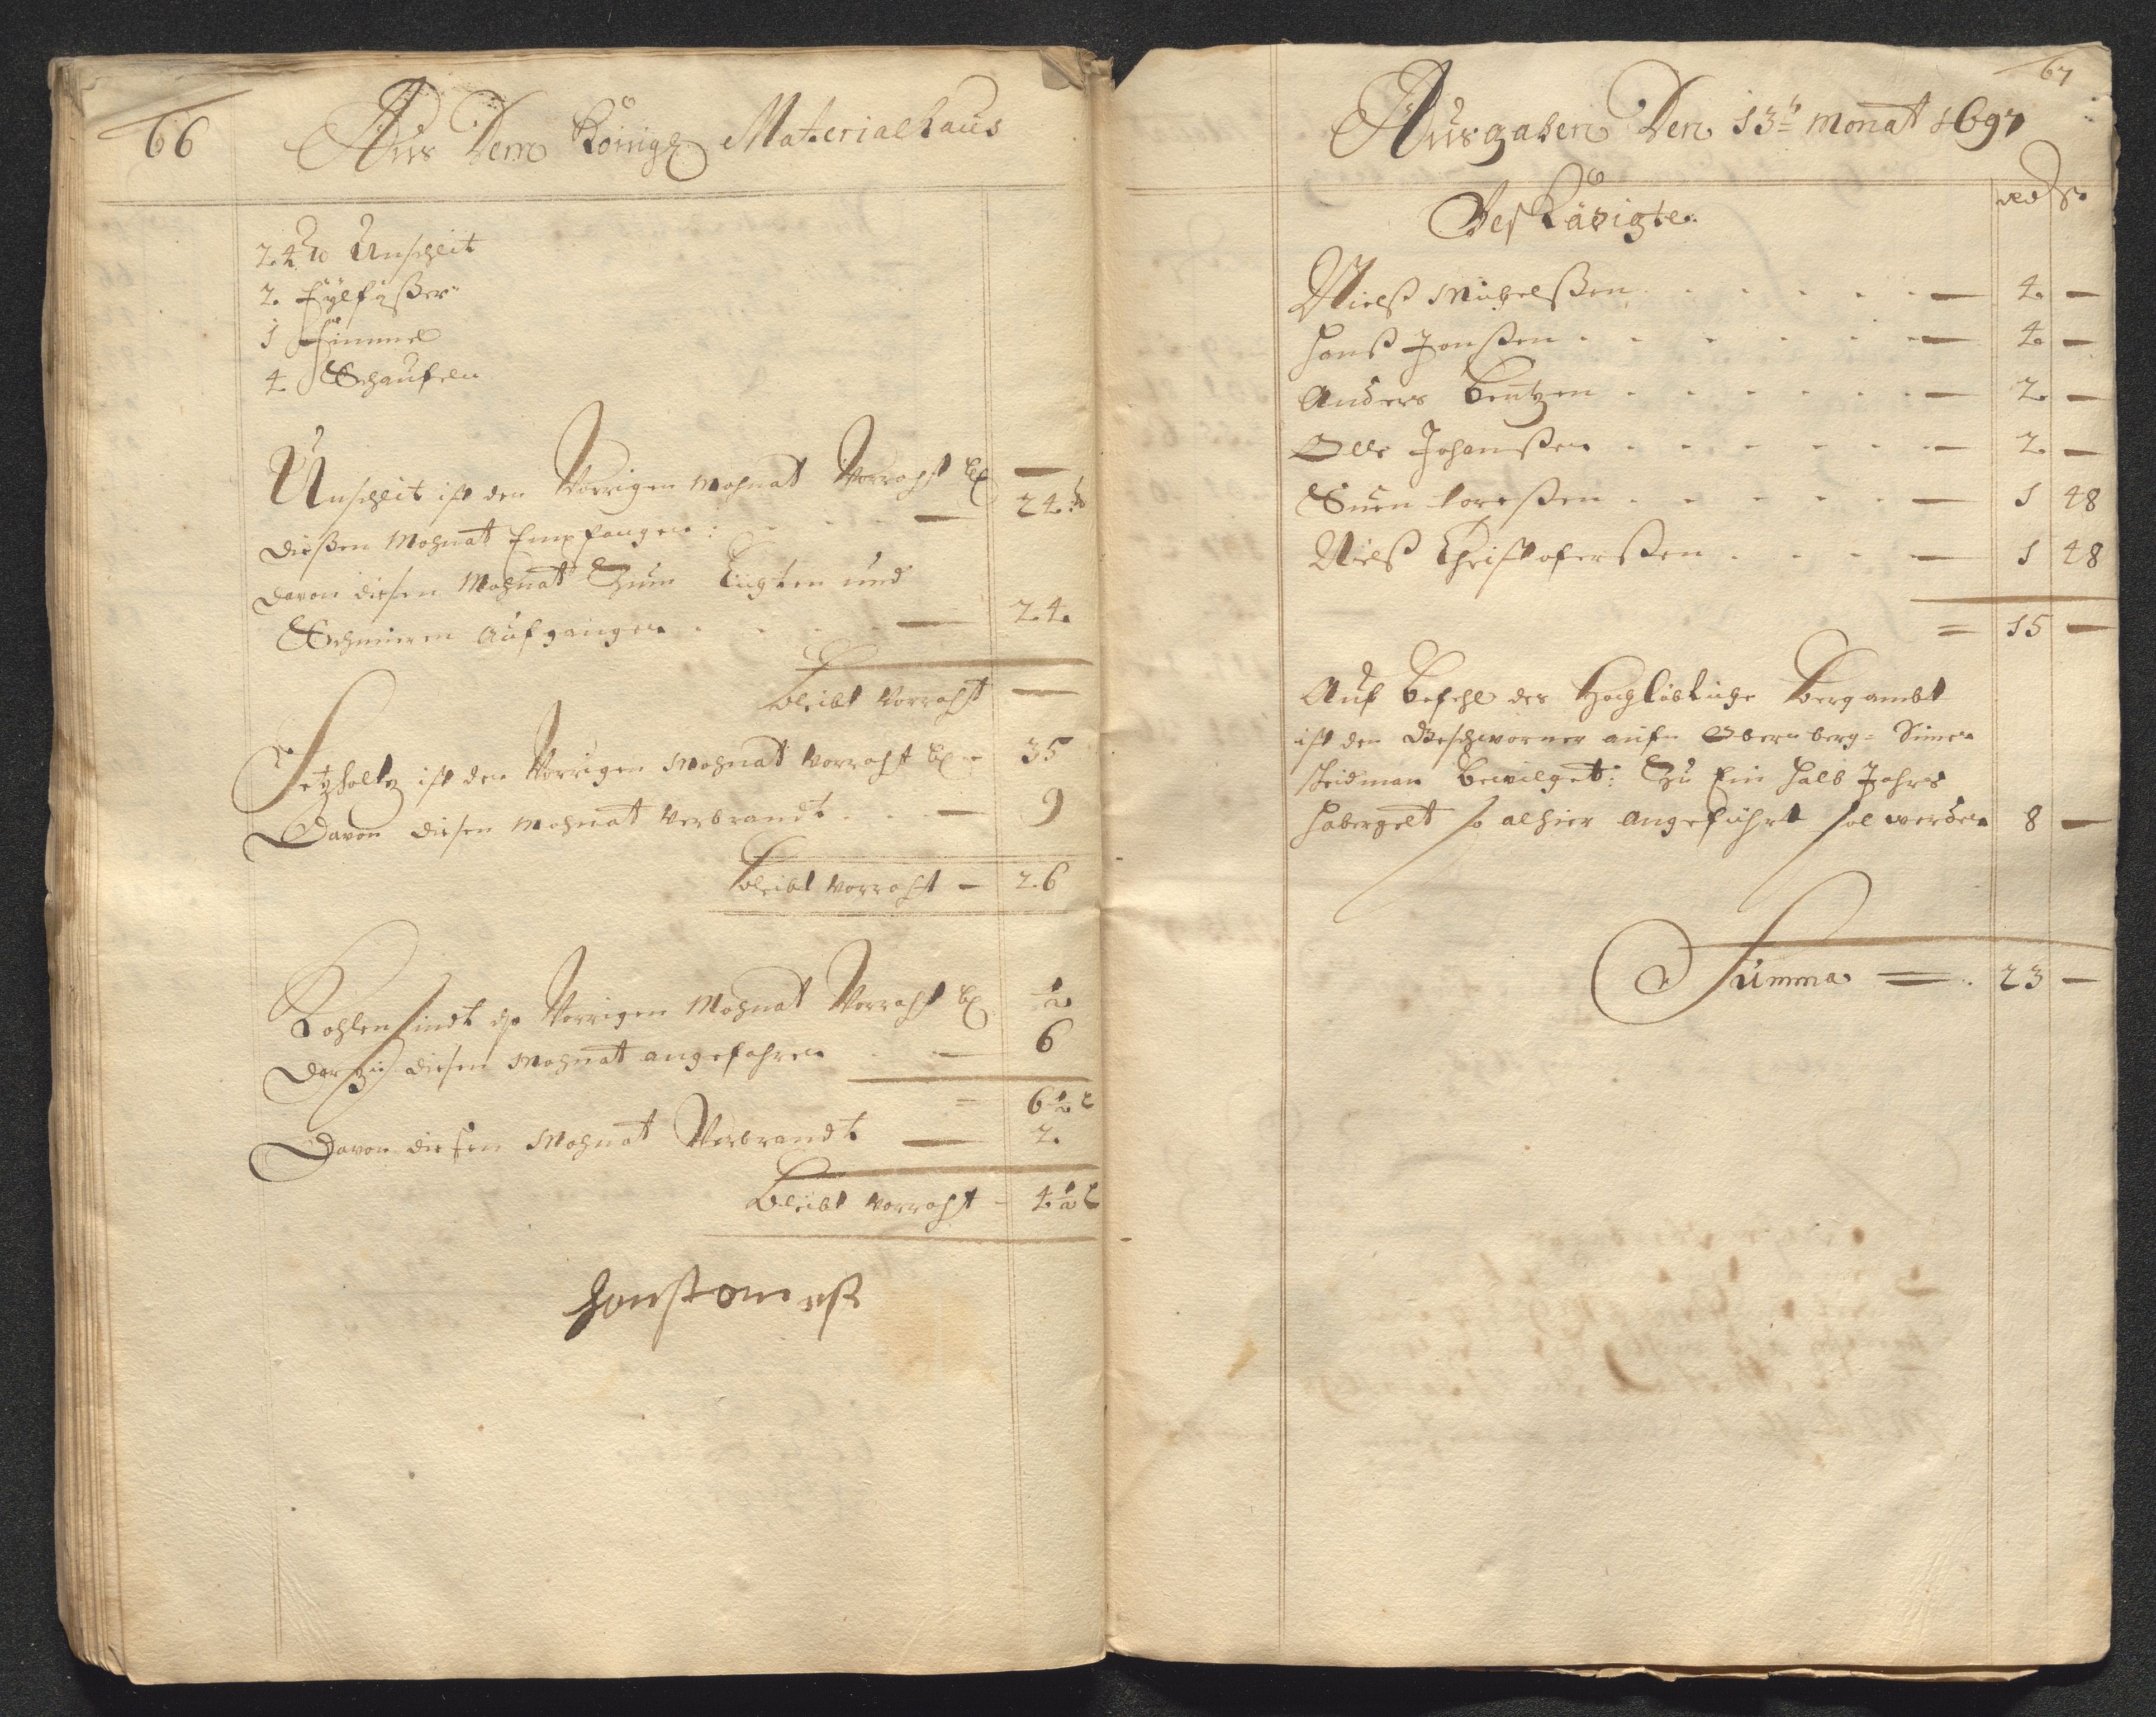 66
Aus Dem Königl Materialhaus
24 ℔ Unschleit
2 Fÿlfäßer
1 Fimmel
4 Schaufeln
Unschleit ist den Vorrigen Mohnat Vorraht bl —
dießen Mohnat Empfangen: — 24 ℔
davon diesen Mohnat Zum Lichten und
Schmieren aufgangen — 24
bleibt Vorraht —
Setzholtz ist den Vorrigen Mohnat Vorraht bl — 35
Davon diesen Mohnat Verbrandt — 9
bleibt Vorraht — 26
Kohlen sindt des Vorrigen Mohnat Vorraht bl ½
darzu diesen Mohnat angefahren — 6
= 6½ L
Davon diesen Mohnat Verbrandt — 2
bleibt Vorraht — 4½ L
67
Ausgaben Den 13t Monat 1697
Beschädigte
Rd ß
Nielß Michelßen — 4 —
Hanß Jonßen — 4 —
Anders Bentzen — 2 —
Olle Johanßen — 2 —
Suen Loreßen — 1 48
Nielß Christoferßen — 1 48
= 15 —
Auf Befehl des Hochlöblich Bergambt
ist den Geschworner aufn Obernberg = Simen
Steidman Bewilget: Zu Ein halb Jahrs
habergelt so alhier Angeführt sol werden 8 —
Summa — 23 —